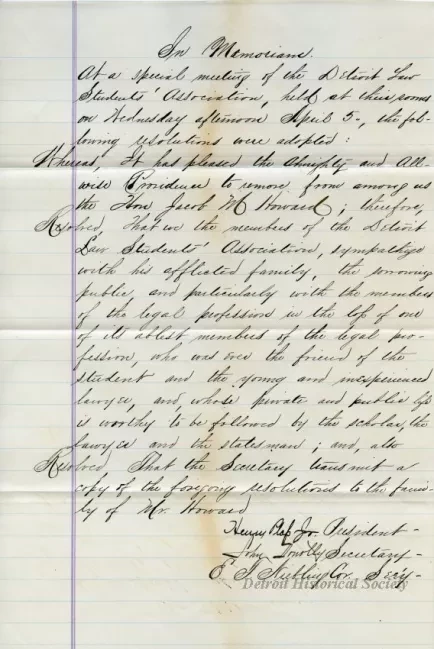 In Memoriam.
At a special meeting of the Detroit Law
Students' Association, held at their rooms
on Wednesday afternoon April 5-, the fol-
lowing resolutions were adopted:
Whereas, It has pleased the Almighty and All-
wise Providence to remove from among us
the Hon Jacob M Howard; therefore,
Resolved, That we the members of the Detroit
Law Students' Association, sympathize
with his afflicted family, the sorrowing
public, and particularly with the members
of the legal profession in the loss of one
of its ablest members of the legal pro-
fession, who was ever the friend of the
student and the young and inexperienced
lawyer, and, whose private and public life
is worthy to be followed by the scholar, the
lawyer and the statesman; and, also
Resolved, That the Secretary transmit a
copy of the foregoing resolutions to the fami-
ly of Mr. Howard
Henry Jr. President-
John Secretary-
Cor. Secy-
Detroit Historical Society